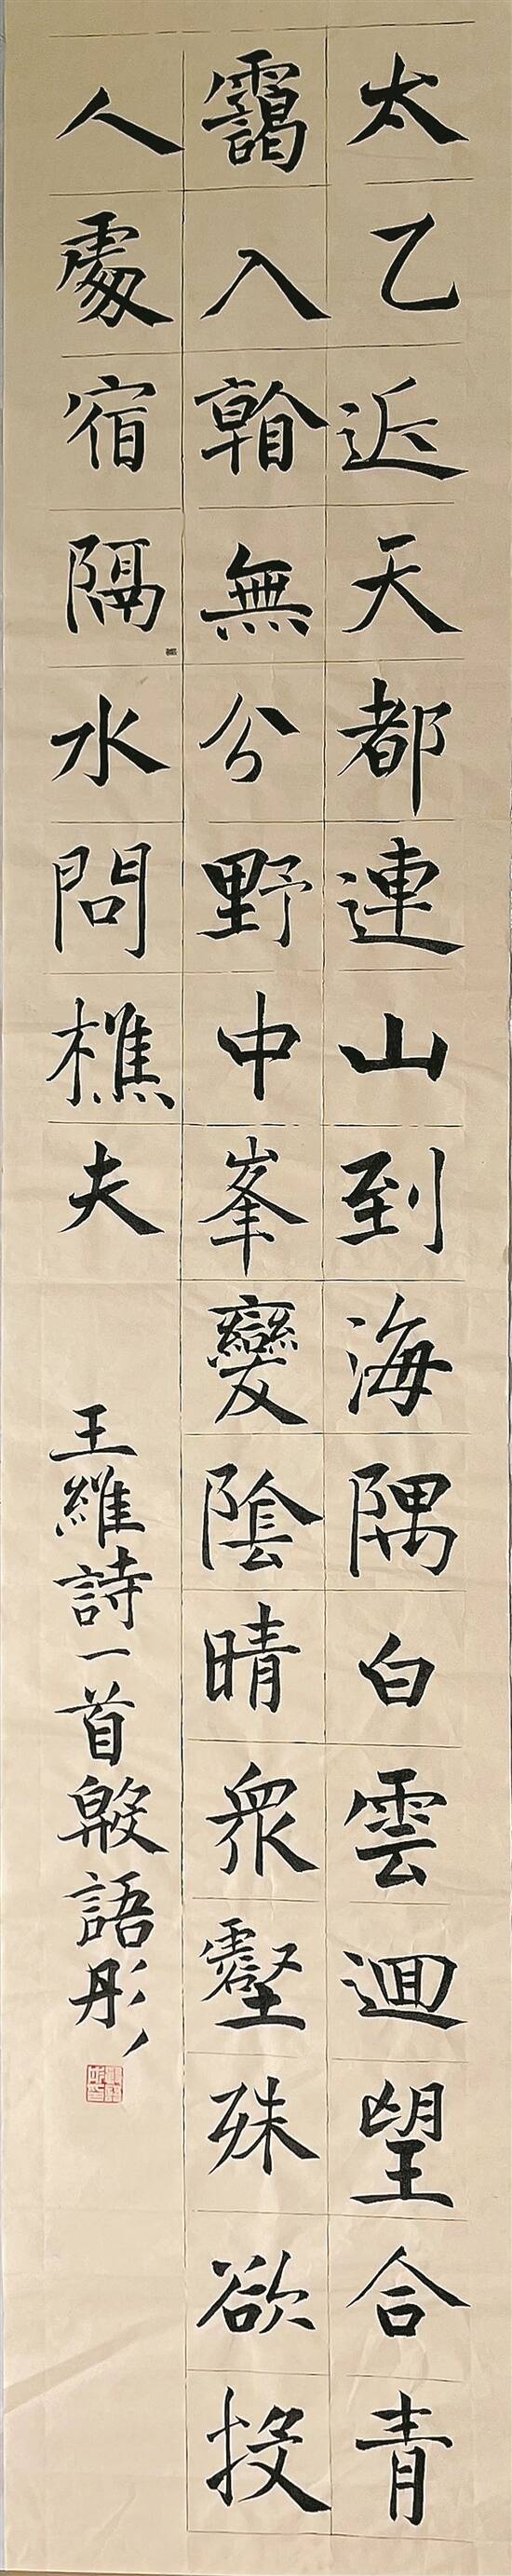 太乙近天都連山到海隅白雲迴望合青
靄入看無分野中峯變陰晴眾壑殊欲投
人處宿隔水問樵夫
王維詩一首語彤